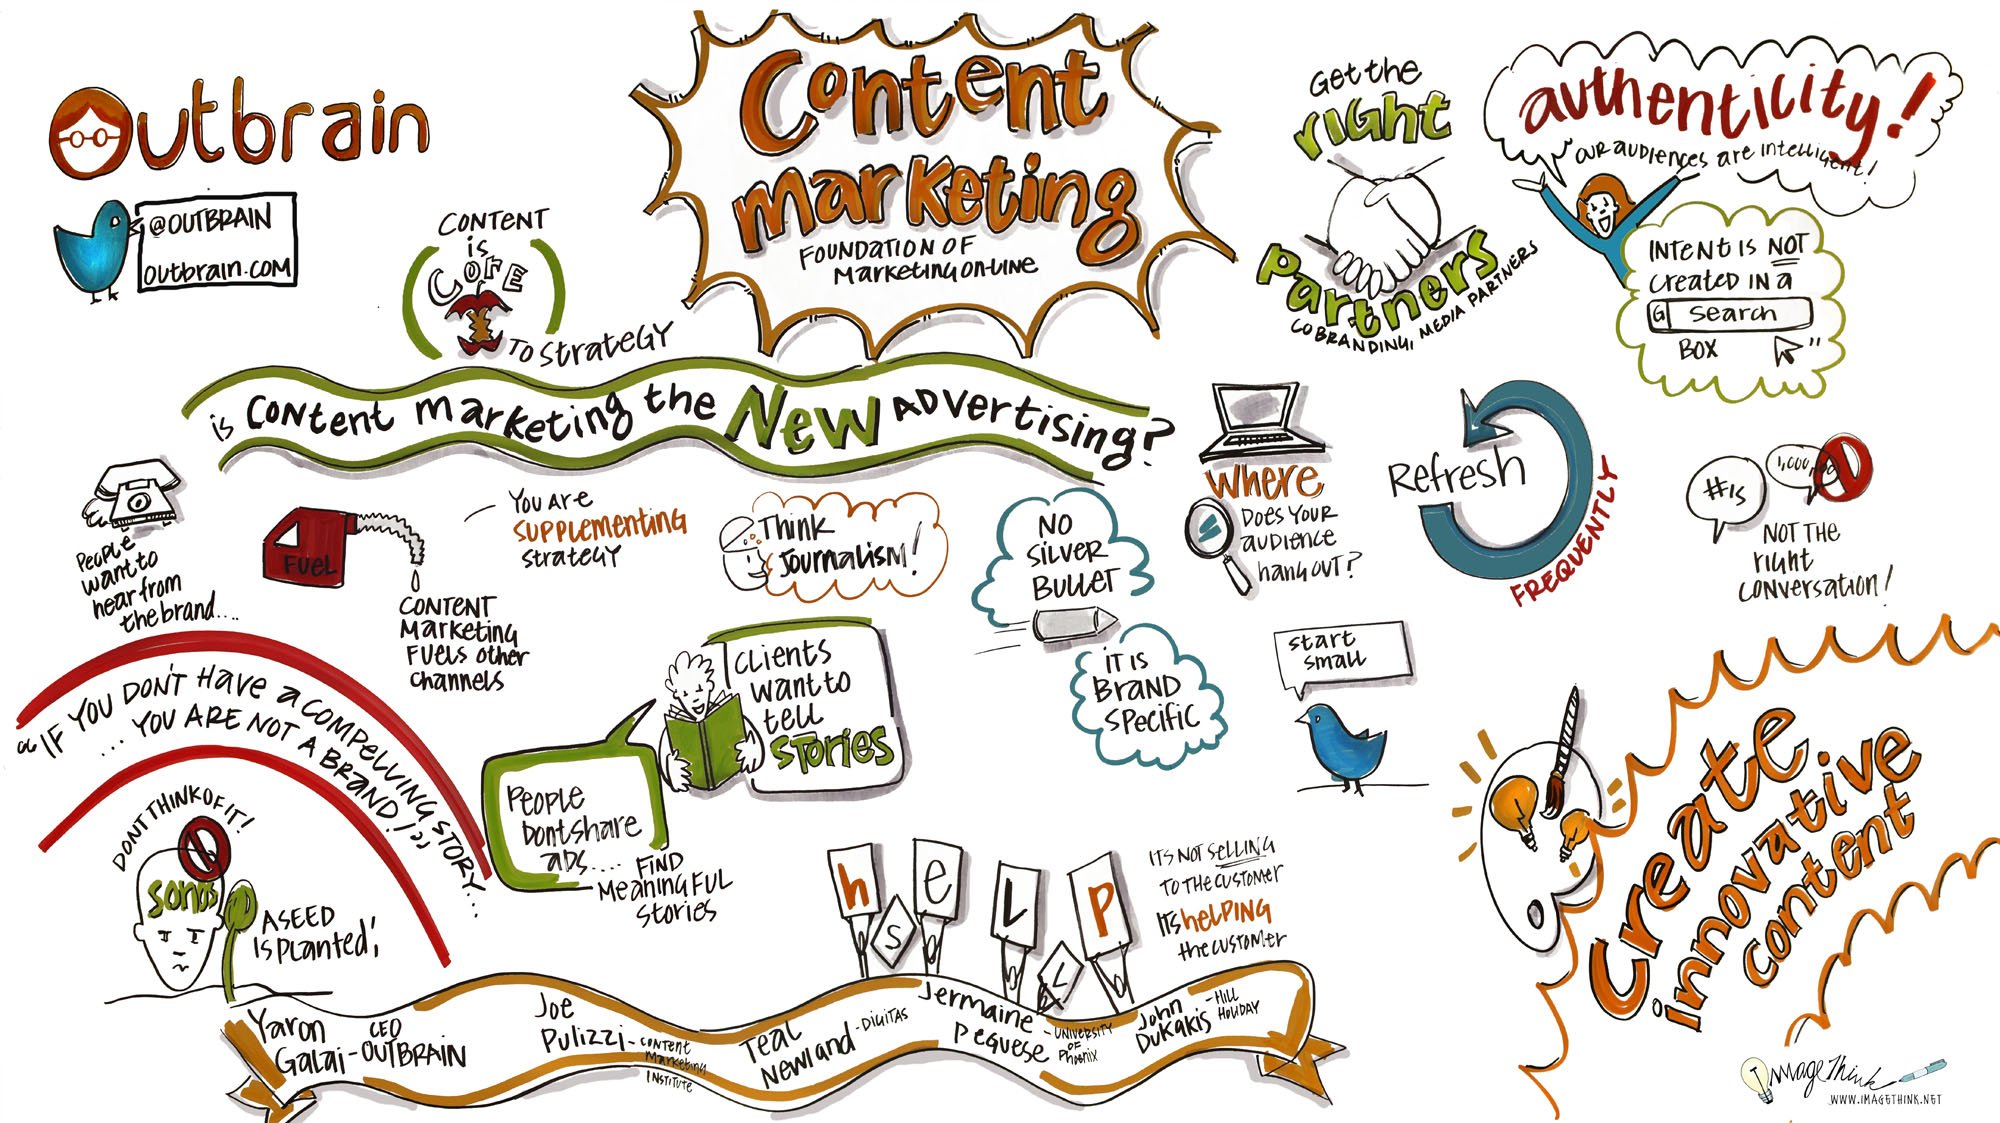 Outbrain
@OUTBRAIN
outbrain.com
CONTENT
is
CORE
TO STRATEGY
Content
marketing
FOUNDATION OF
MARKETING ON-LINE
Get the
right
Partners
CO BRANDING, MEDIA PARTNERS
authenticity!
"OUR AUDIENCES are intelligent!
INTENT IS NOT
created IN a
G search
BOX "
is CONtent marketing the New ADvertising?
People
want to
hear from
the brand....
FUEL
CONTENT
Marketing
FUELS other
channels
YOU ARE
SUPPLEMENTING
strateGY
Think
Journalism!
NO
SILVER
BULLET
IT IS
BRAND
SPECIFIC
Where
DOES YOUR
audience
hang out?
Refresh
FREQUENTLY
#IS
1,000,000
NOT THE
right
conversation!
"IF YOU DON'T HAVE a COMPELLING STORY...
... YOU ARE NOT A BRAND!"
DON'T THINK OF IT!
songs
A SEED
is planted!
CLIENTS
want to
tell
STORIES
PEOPLE
DON'T share
ADS....
FIND
MeaningFUL
stories
start
small
hELP
SLL
IT'S NOT SELLING
TO THE CUSTOMER
IT'S HELPING
the customer
Create
innovative
content
Yaron
Galai - CEO
OUTBRAIN
Joe
Pulizzi - CONTENT
Marketing
INSTITUTE
Teal
Newland - DIGITAS
Jermaine
Peguese - UNIVERSITY
OF
Phoenix
John
Dukakis - HILL
HOLIDAY
ImageThink
WWW.IMAGETHINK.NET